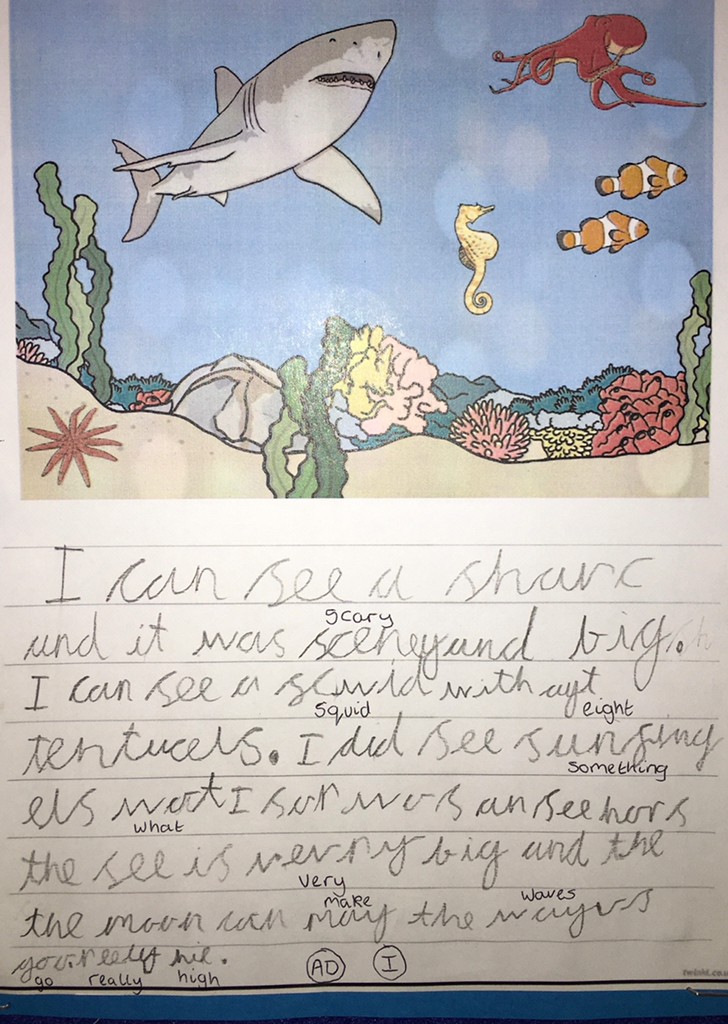 I can see a sharc
scary
and it was sceney and big.
I can see a scwid with ayt
squid eight
tentucels. I did see sunfing
something
els wot I sor wos an see hors
what
the see is verry big and the
very
make waves
the moon can may the wayvs
go
really high
AD I
twinkl.co.u